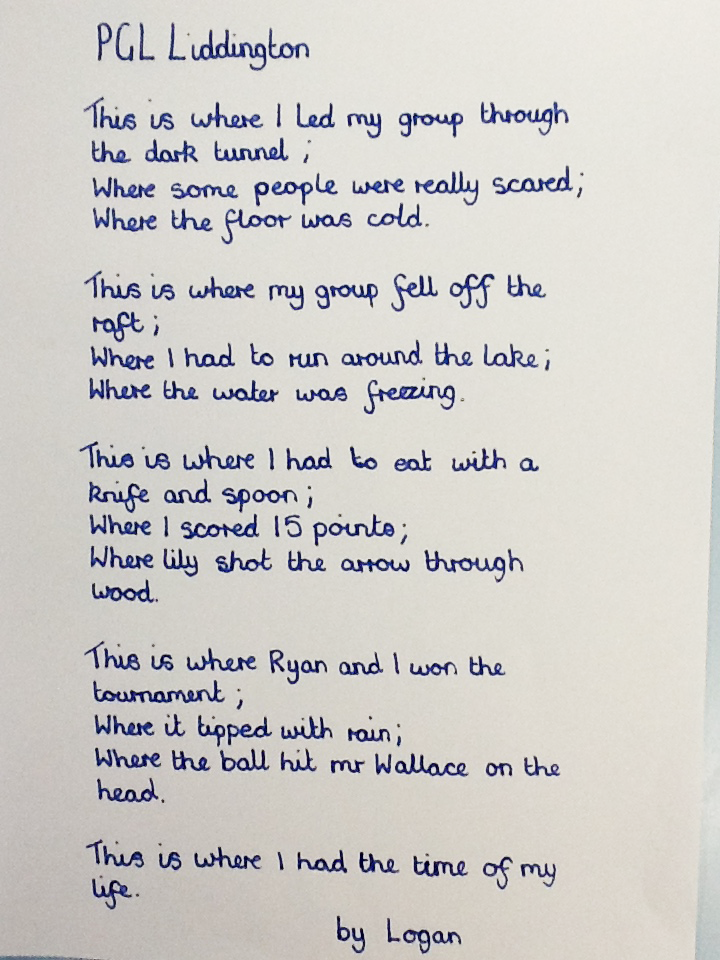 PGL Liddington
This is where I led my group through
the dark tunnel ;
Where some people were really scared;
Where the floor was cold.
This is where my group fell off the
raft ;
Where I had to run around the lake;
Where the water was freezing.
This is where I had to eat with a
knife and spoon;
Where I scored 15 points;
Where lily shot the arrow through
wood.
This is where Ryan and I won the
tournament ;
Where it tipped with rain;
Where the ball hit mr Wallace on the
head.
This is where I had the time of my
life.
by Logan